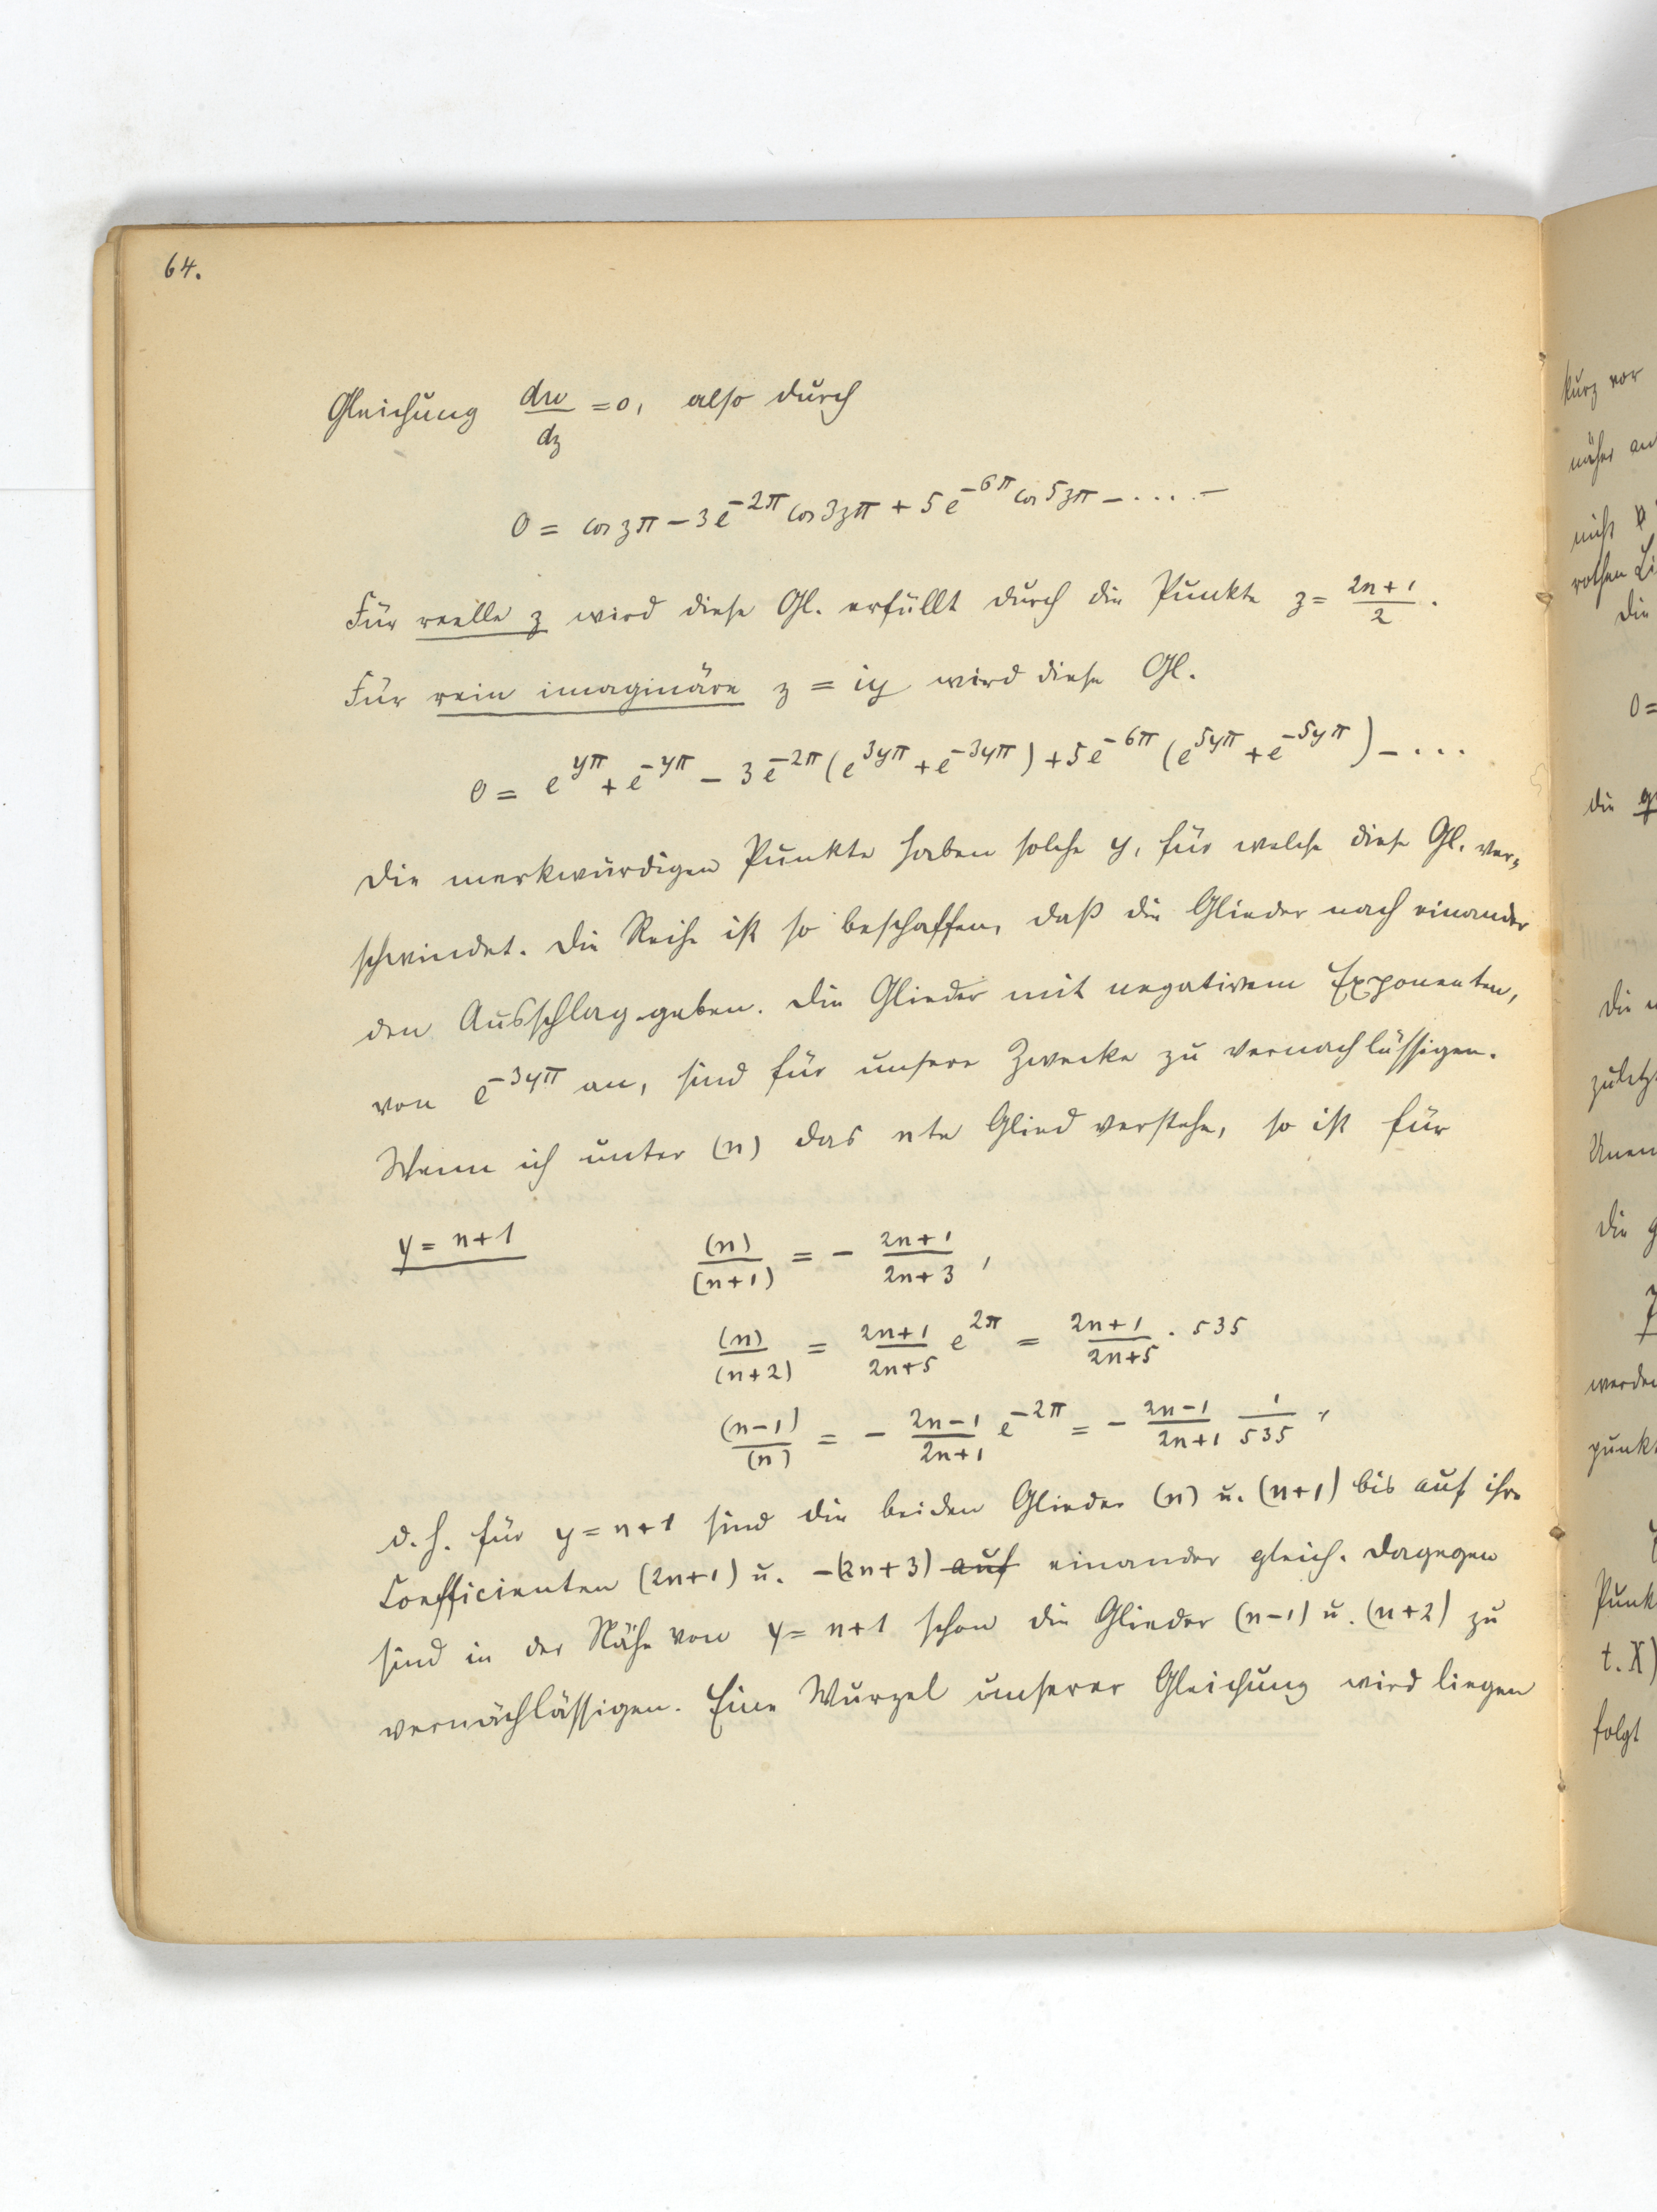 64.
Gleichung dw/dz = 0, also durch
0 = cos zπ − 3e^{−2π} cos 3zπ + 5e^{−6π} cos 5zπ − . . . . −
Für reelle z wird diese Gl. erfüllt durch die Punkte z = (2n+1)/2.
Für rein imaginäre z = iy wird diese Gl.
0 = e^{yπ} + e^{−yπ} − 3e^{−2π}(e^{3yπ} + e^{−3yπ}) + 5e^{−6π}(e^{5yπ} + e^{−5yπ}) − . . .
Die merkwürdigen Punkte haben solche y, für welche diese Gl. ver-
schwindet. Die Reihe ist so beschaffen, daß die Glieder nach einander
den Ausschlag geben. Die Glieder mit negativem Exponenten,
von e^{−3yπ} an, sind für unsere Zwecke zu vernachlässigen.
Wenn ich unter (n) das nte Glied verstehe, so ist für
y = n+1 (n)/(n+1) = − (2n+1)/(2n+3),
(n)/(n+2) = (2n+1)/(2n+5) e^{2π} = (2n+1)/(2n+5) · 535
(n−1)/(n) = − (2n−1)/(2n+1) e^{−2π} = − (2n−1)/(2n+1) 1/535,
d. h. für y = n+1 sind die beiden Glieder (n) u. (n+1) bis auf ihre
Coefficienten (2n+1) u. −(2n+3) auf einander gleich. Dagegen
sind in der Nähe von y = n+1 schon die Glieder (n−1) u. (n+2) zu
vernachlässigen. Eine Wurzel unserer Gleichung wird liegen
kurz vor
näher an
nicht
rothen Li
Die
0 =
die
Die
zuletzt
Unen
Die g
werden
punkt
Punk
t. X)
folgt